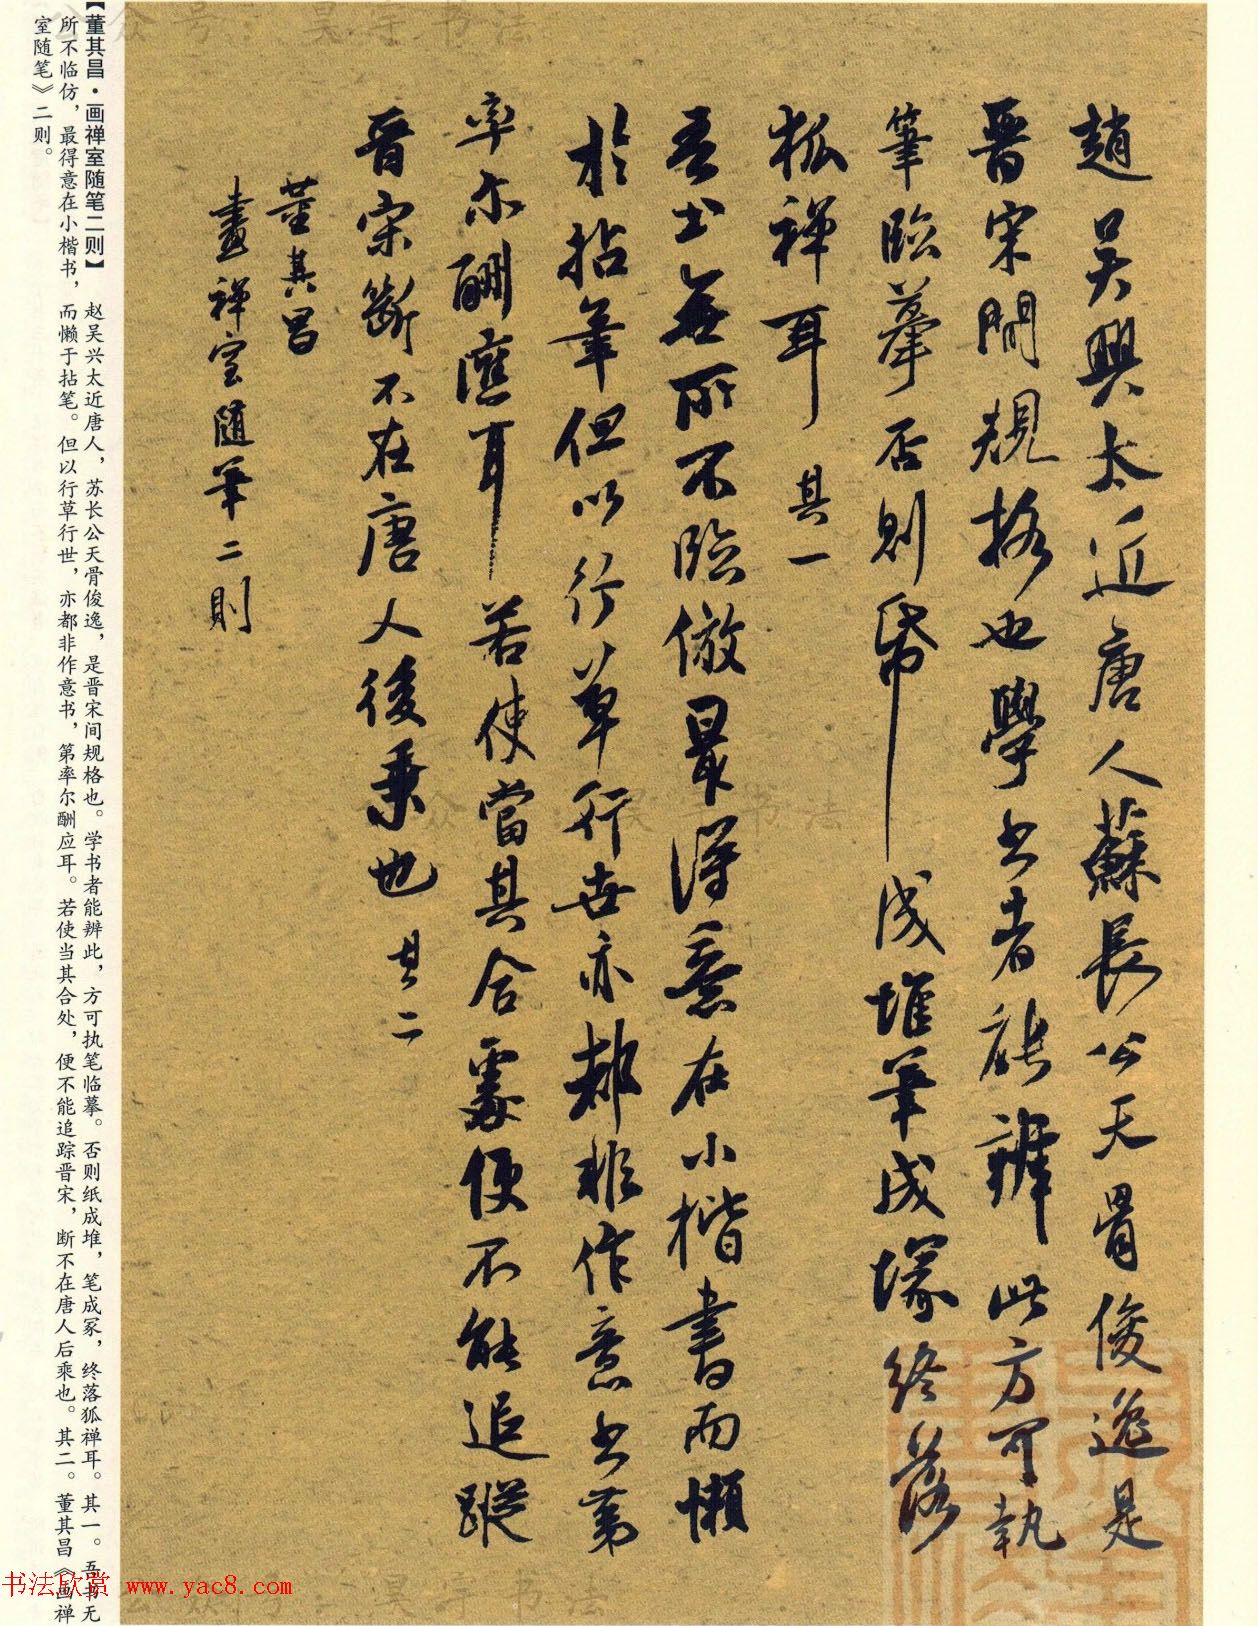 趙吳興太近唐人蘇長公天骨俊逸是
晉宋間規格也學书者能辨此方可執
筆臨摹否則紙成堆筆成塚終落
狐禅耳 其一
吾书無所不臨倣最得意在小楷書而懶
於拈筆但以行草行世亦都非作意书第
率尔酬應耳若使當其合處便不能追蹤
晉宋斷不在唐人後乘也 其二
董其昌
畫禅室随筆二則
【董其昌·画禅室随笔二则】 赵吴兴太近唐人，苏长公天骨俊逸，是晋宋间规格也。学书者能辨此，方可执笔临摹。否则纸成堆，笔成冢，终落狐禅耳。其一。吾书无
所不临仿，最得意在小楷书，而懒于拈笔。但以行草行世，亦都非作意书，第率尔酬应耳。若使当其合处，便不能追踪晋宋，断不在唐人后乘也。其二。董其昌《画禅
室随笔》二则。
公众号：昊宇书法
公众号：昊宇书法
书法欣赏 www.yac8.com
公众号：昊宇书法